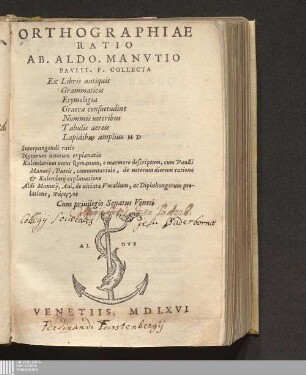 ORTHOGRAPHIAE
RATIO
AB. ALDO. MANVTIO
PAVLLI. F. COLLECTA
Ex Libris antiquis
Grammaticis
Etymologia
Graeca consuetudine
Nummis veteribus
Tabulis aereis
Lapidibus amplius M D
Interpungendi ratio
Notarum veterum explanatio
Kalendarium vetus Romanum, e marmore descriptum, cum Paulli
Manutij, Patris, commentariolo, de veterum dierum ratione
& Kalendarij explanatione
Aldi Manutij, Aui, de vitiata Vocalium, ac Diphthongorum pro-
latione, Πάρεργον
Cum privilegio Senatus Veneti
Collegij Societatis Jesu Paderbornae
AL DVS
VENETIIS, MDLXVI
Ferdinandi Furstenbergij